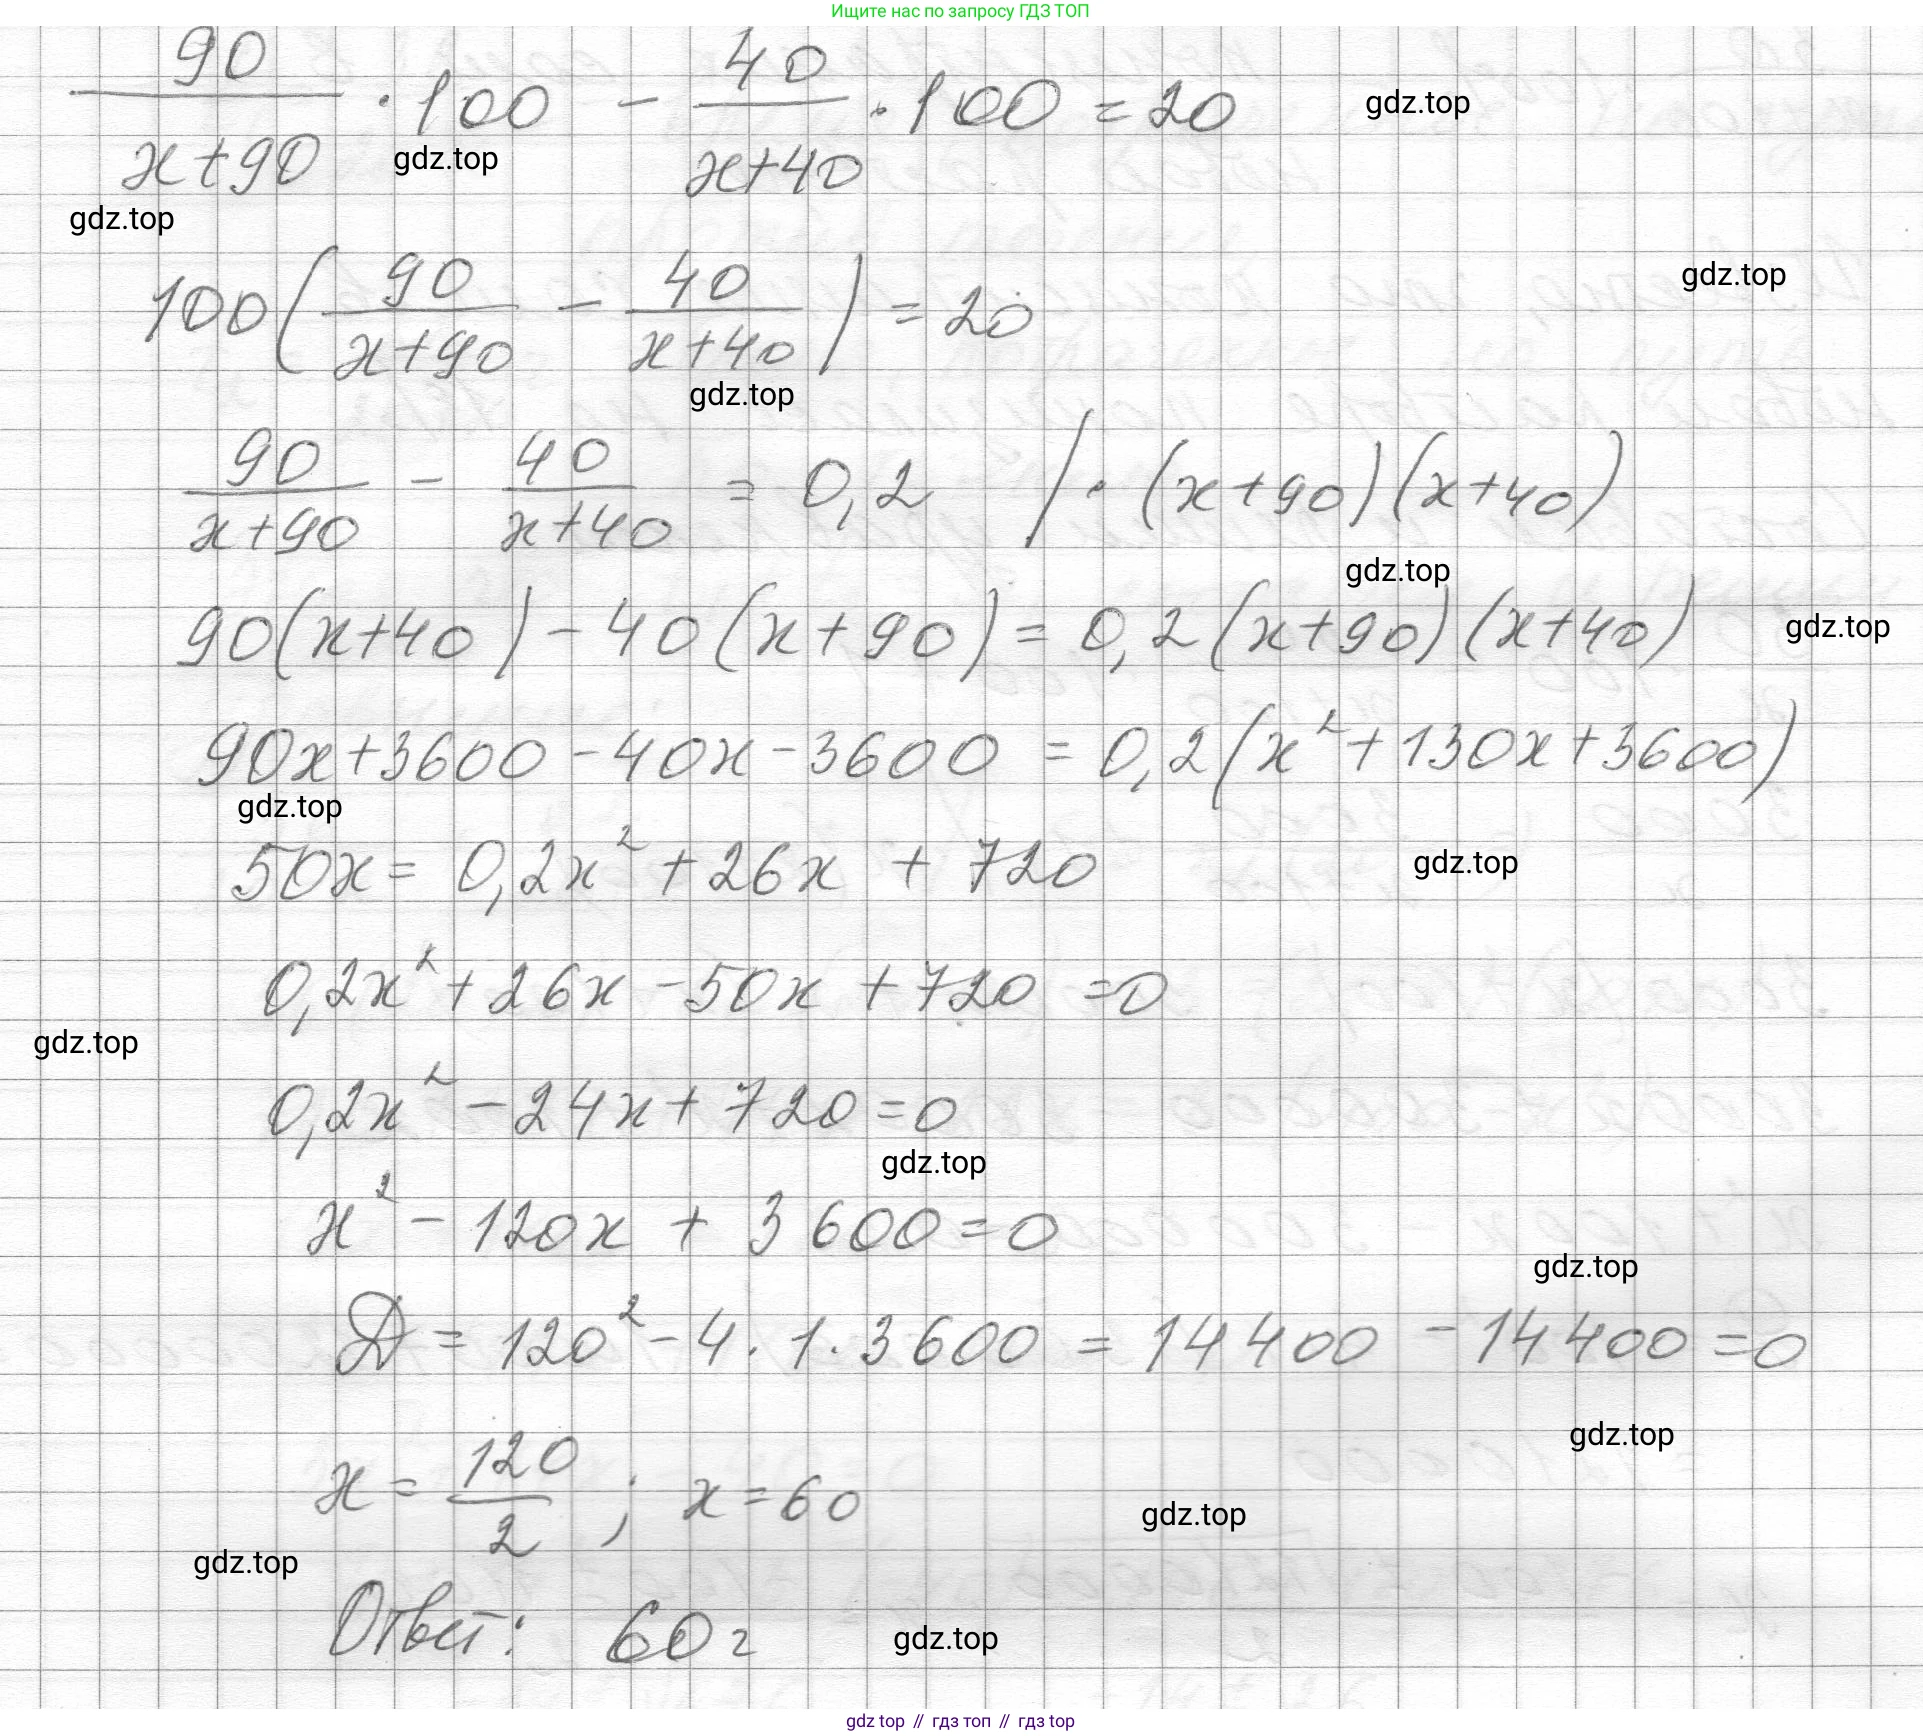 Ищите нас по запросу ГДЗ ТОП
90/(x+90) · 100 − 40/(x+40) · 100 = 20
gdz.top
gdz.top
gdz.top
100(90/(x+90) − 40/(x+40)) = 20
gdz.top
gdz.top
90/(x+90) − 40/(x+40) = 0,2 / · (x+90)(x+40)
gdz.top
90(x+40) − 40(x+90) = 0,2(x+90)(x+40)
gdz.top
90x+3600−40x−3600 = 0,2(x²+130x+3600)
gdz.top
50x = 0,2x² + 26x + 720
gdz.top
0,2x² + 26x − 50x + 720 = 0
gdz.top
0,2x² − 24x + 720 = 0
gdz.top
x² − 120x + 3600 = 0
gdz.top
D = 120² − 4 · 1 · 3600 = 14400 − 14400 = 0
gdz.top
x = 120/2 ; x = 60
gdz.top
gdz.top
Ответ: 60 г
gdz.top
gdz top // гдз топ // гдз top